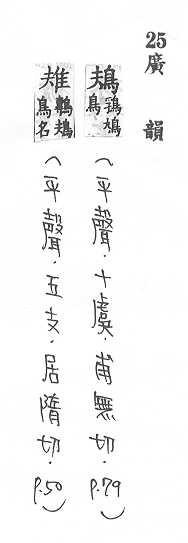 25 廣韻
鳺 鳩鳥 (平聲．十虞．甫無切．p.79)
鳥名 (平聲．五支．居隋切．p.50)